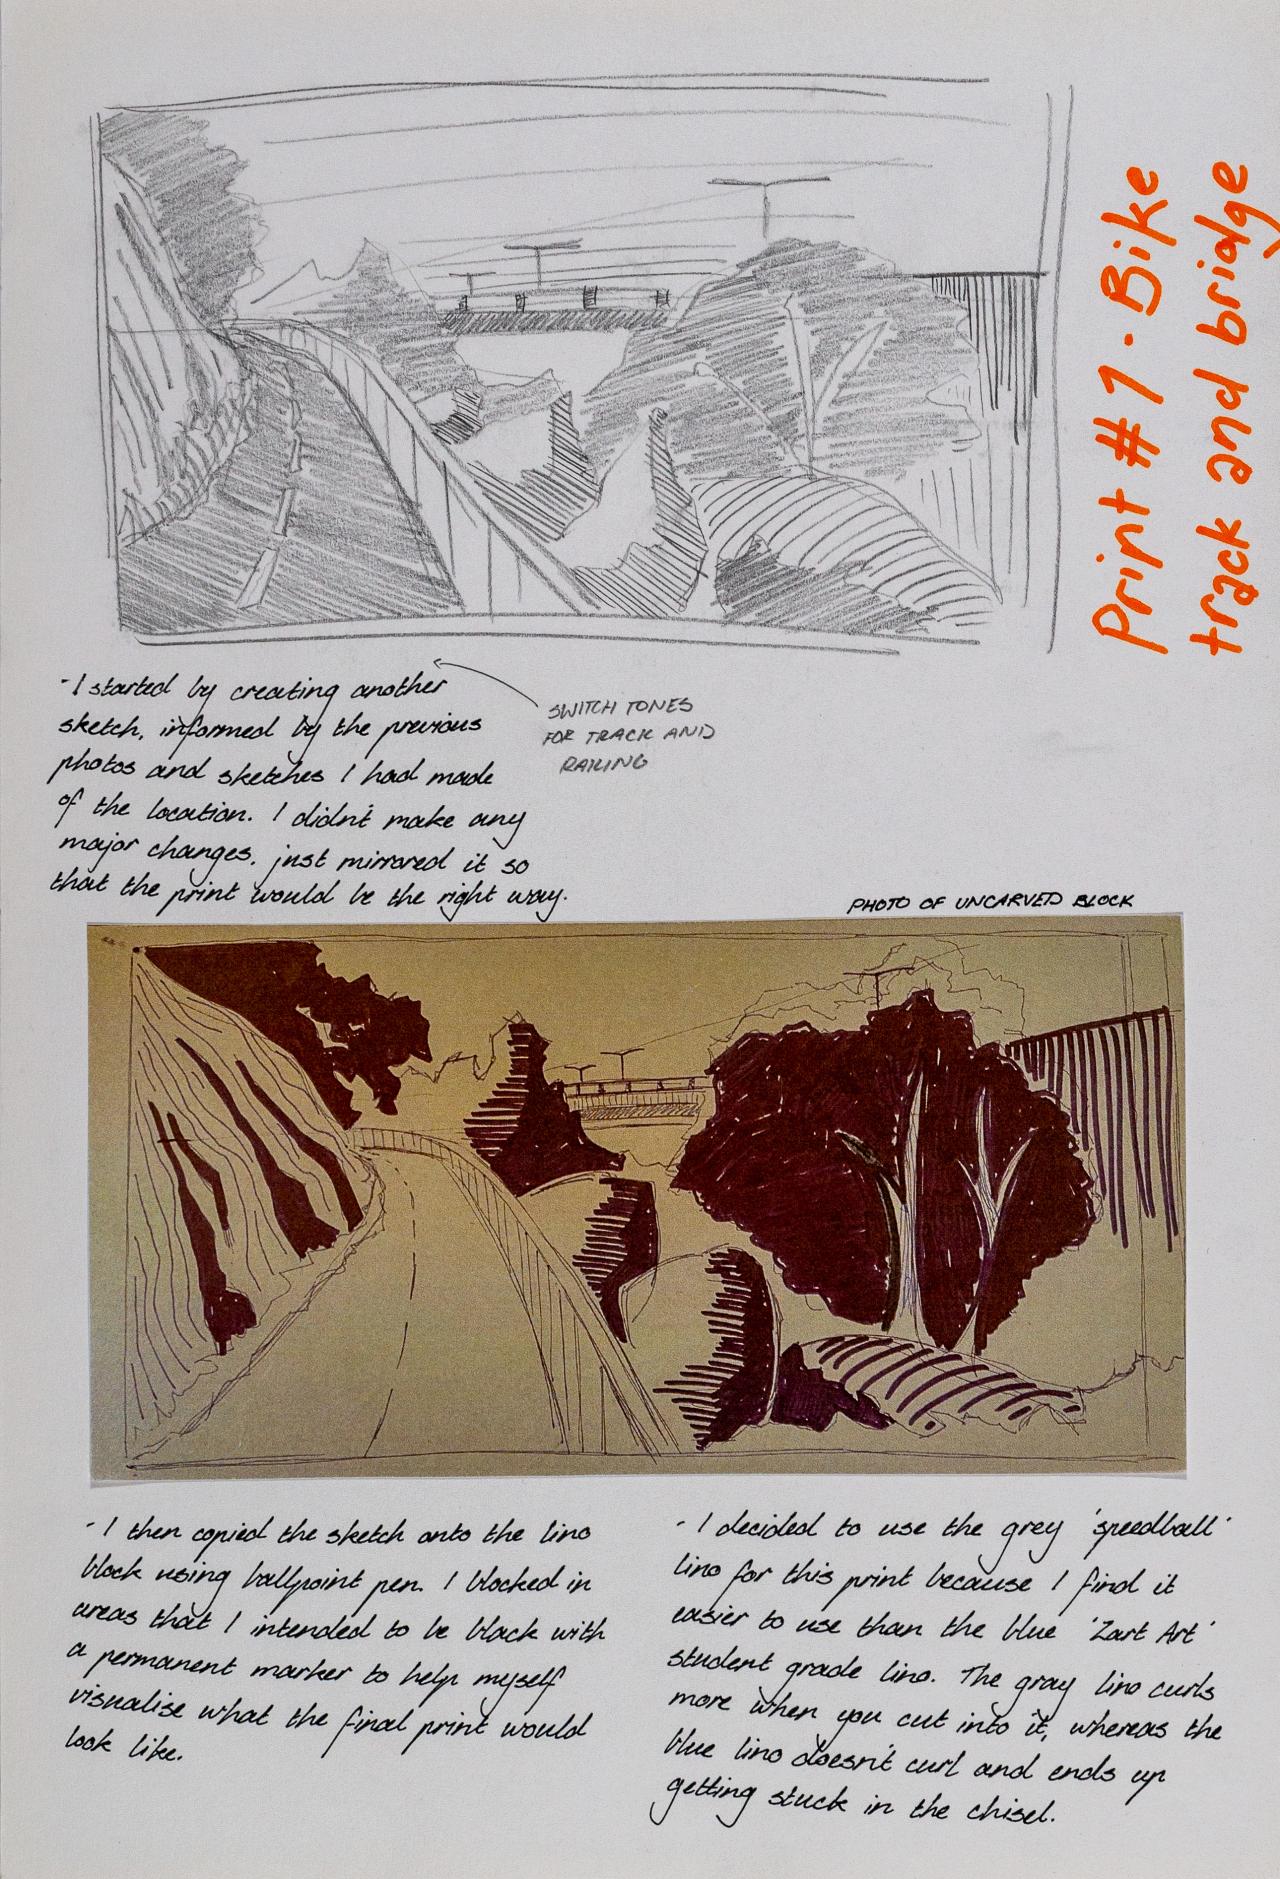 Print #1 - Bike
track and bridge
- I started by creating another
sketch, informed by the previous
photos and sketches I had made
of the location. I didn't make any
major changes, just mirrored it so
that the print would be the right way.
SWITCH TONES
FOR TRACK AND
RAILING
PHOTO OF UNCARVED BLOCK
- I then copied the sketch onto the lino
block using ballpoint pen. I blocked in
areas that I intended to be black with
a permanent marker to help myself
visualise what the final print would
look like.
- I decided to use the grey 'speedball'
lino for this print because I find it
easier to use than the blue 'Zart Art'
student grade lino. The gray lino curls
more when you cut into it, whereas the
blue lino doesn't curl and ends up
getting stuck in the chisel.